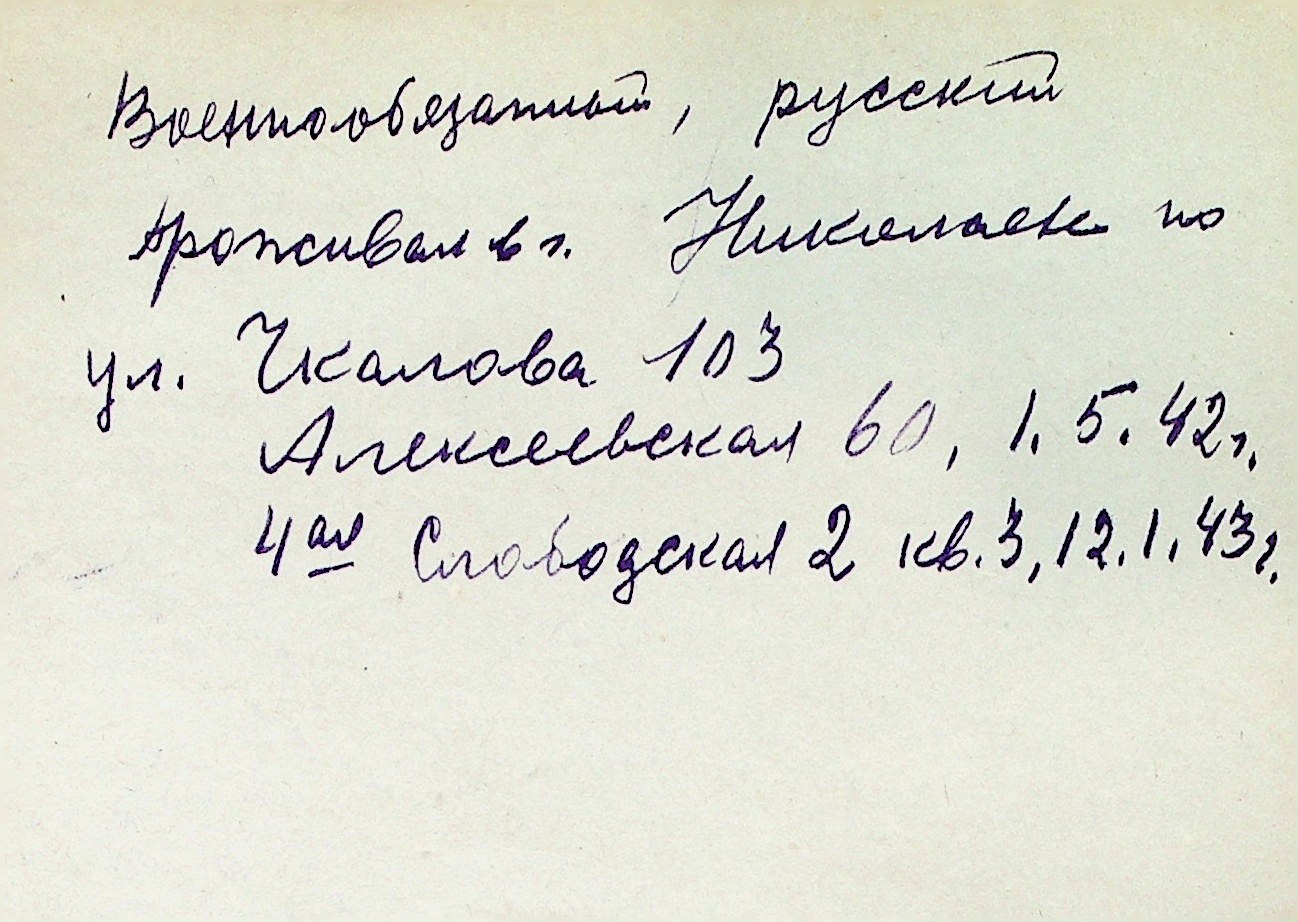 Военнообязанный, русский
проживал в г. Николаеве по
ул. Чкалова 103
Алексеевская 60, 1.5.42г.
4ая Слободская 2 кв.3, 12.1.43г.